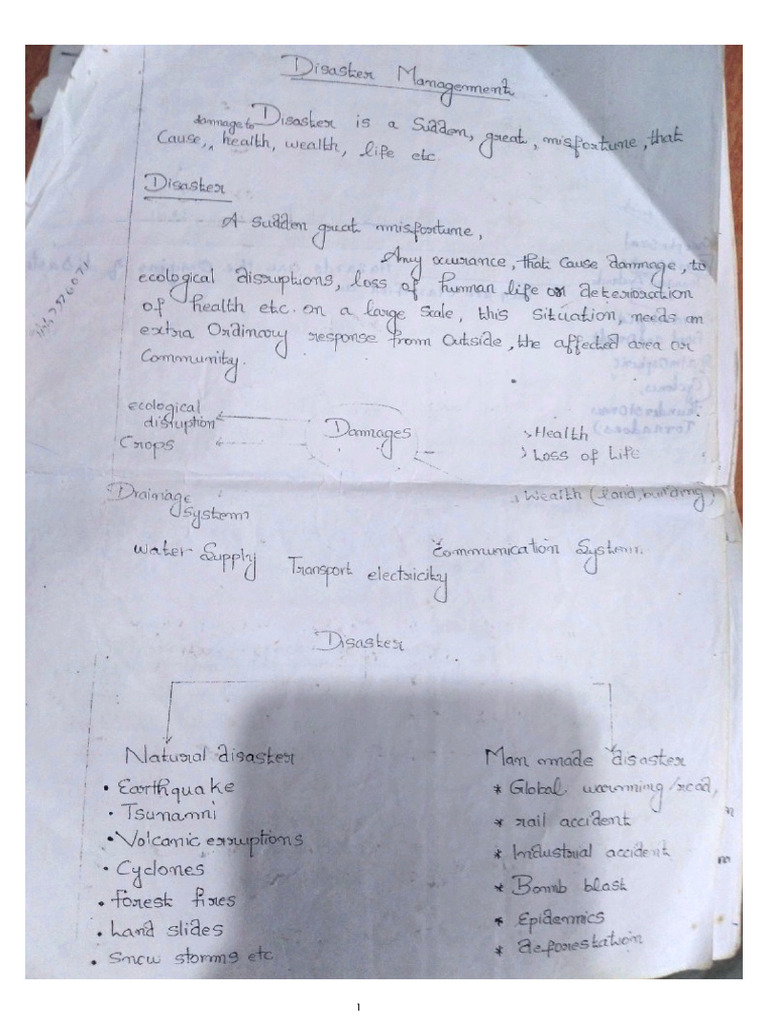 Disaster Management
damnage to Disaster is a Sudden, great, misfortune, that
Cause, health, wealth, life etc.
Disaster
A sudden great misfortune,
Any occurance, that cause damnage, to
ecological disruptions, loss of human life or deterioration
of health etc. on a large scale, this situation, needs an
extra Ordinary response from Outside, the affected area or
Community.
ecological
disruption
Damages
Health
Crops
Loss of Life
Drainage
System
Wealth (land, building)
Water Supply
Transport electricity
Communication System
Disaster
Natural disaster
Man made disaster
• Earthquake
* Global warming/road,
• Tsunami
* rail accident
• Volcanic erruptions
* Industrial accident
• Cyclones
* Bomb blast
• forest fires
* Epidemics
• Land slides
* deforestation
• Snow storms etc
1